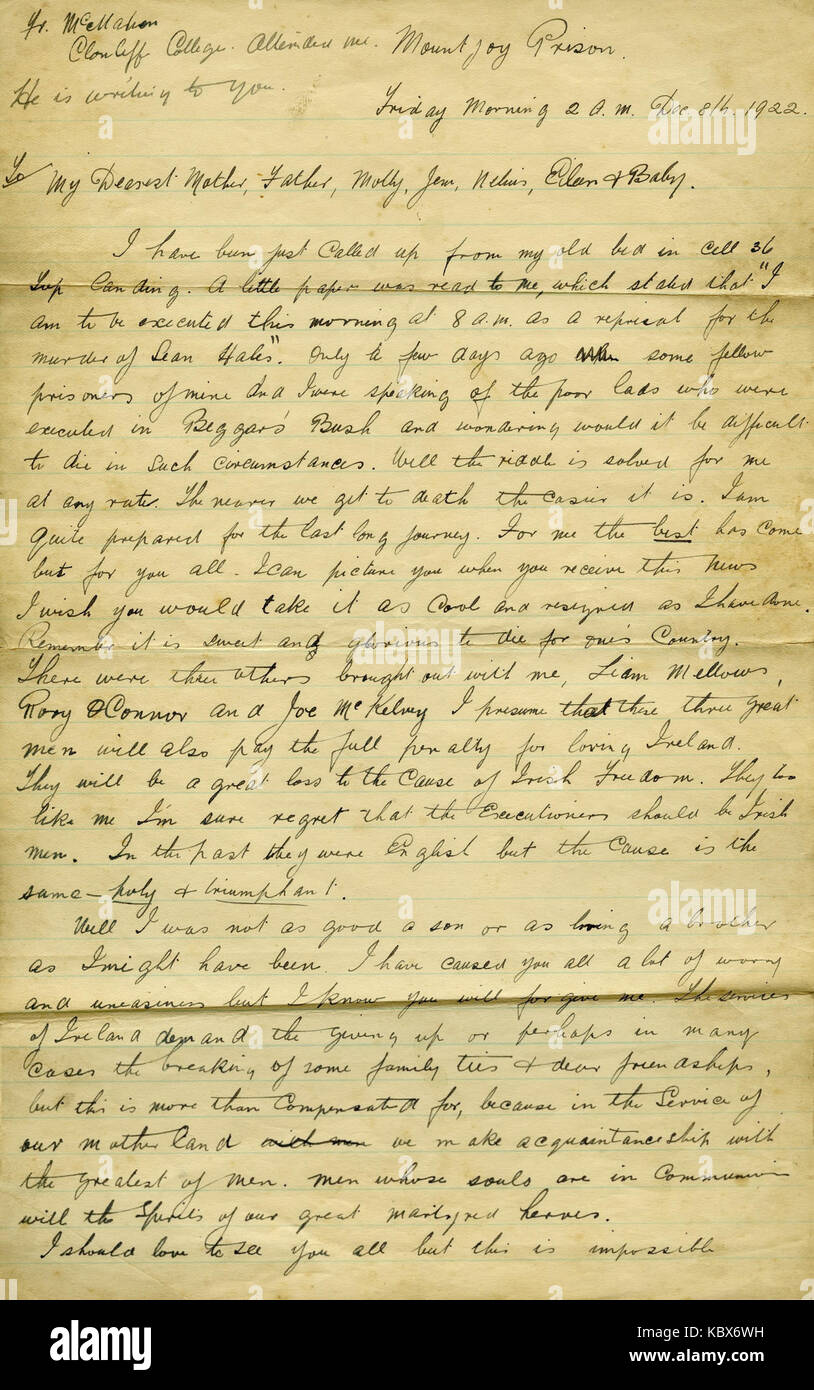 Fr. McMahon
Clonliff College. Attended me.
Mountjoy Prison.
He is writing to you.
Friday Morning 2 a.m. Dec. 8th. 1922.
To My Dearest Mother, Father, Molly, Jem, Nelius, Eileen & Baby.
I have been just called up from my old bed in cell 36
Top Landing. A little paper was read to me, which stated that "I
am to be executed this morning at 8 a.m. as a reprisal for the
murder of Sean Hales". Only a few days ago when some fellow
prisoners of mine and I were speaking of the poor lads who were
executed in Beggar's Bush and wondering would it be difficult
to die in such circumstances. Well the riddle is solved for me
at any rate. The nearer we get to death the easier it is. I am
quite prepared for the last long journey. For me the best has come
but for you all - I can picture you when you receive this news
I wish you would take it as cool and resigned as I have done.
Remember it is sweet and glorious to die for one's Country.
There were three others brought out with me, Liam Mellows,
Rory O'Connor and Joe McKelvey I presume that these three great
men will also pay the full penalty for loving Ireland.
They will be a great loss to the Cause of Irish Freedom. They too
like me I'm sure regret that the Executioners should be Irish
men. In the past they were English but the Cause is the
same - holy & triumphant.
Well I was not as good a son or as loving a brother
as I might have been. I have caused you all a lot of worry
and uneasiness but I know you will forgive me. The services
of Ireland demand the giving up or perhaps in many
cases the breaking of some family ties & dear friendships,
but this is more than compensated for, because in the Service of
our motherland we make acquaintanceship with
the greatest of men. men whose souls are in Communion
with the Spirits of our great martyred heroes.
I should love to see you all but this is impossible
alamy stock photo
KBX6WH
www.alamy.com